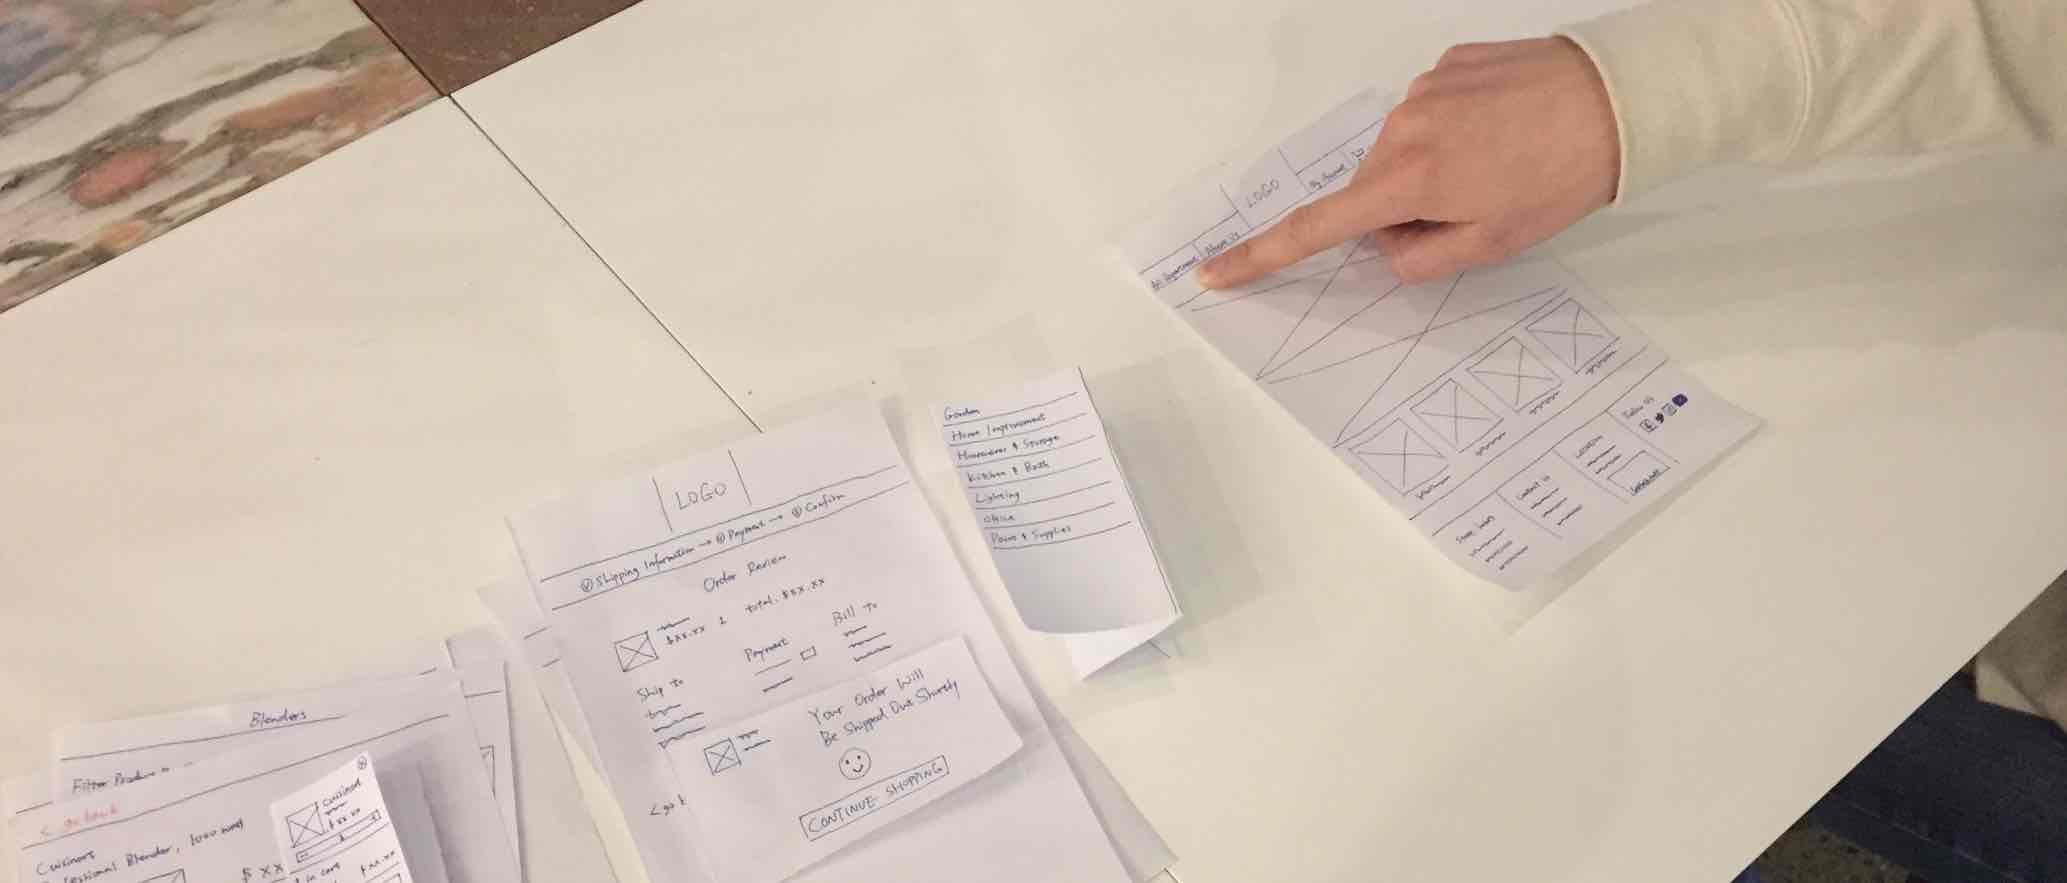 LOGO
My Account
All Departments
About Us
Follow Us
Contact Us
Garden
Home Improvement
Houseware & Storage
Kitchen & Bath
Lighting
Office
Paint & Supplies
LOGO
Shipping Information → Payment → ③ Confirm
Order Review
$xx.xx 1 total: $xx.xx
Ship To
Payment
Bill To
Your Order Will
Be Shipped Out Shortly
CONTINUE SHOPPING
< go b
Blenders
Filter Product
< go back
Cuisinart
Professional Blender, 1000 watt
$ XX
Cuisinart
$ xx.xx
1
in cart
$ xx.xx